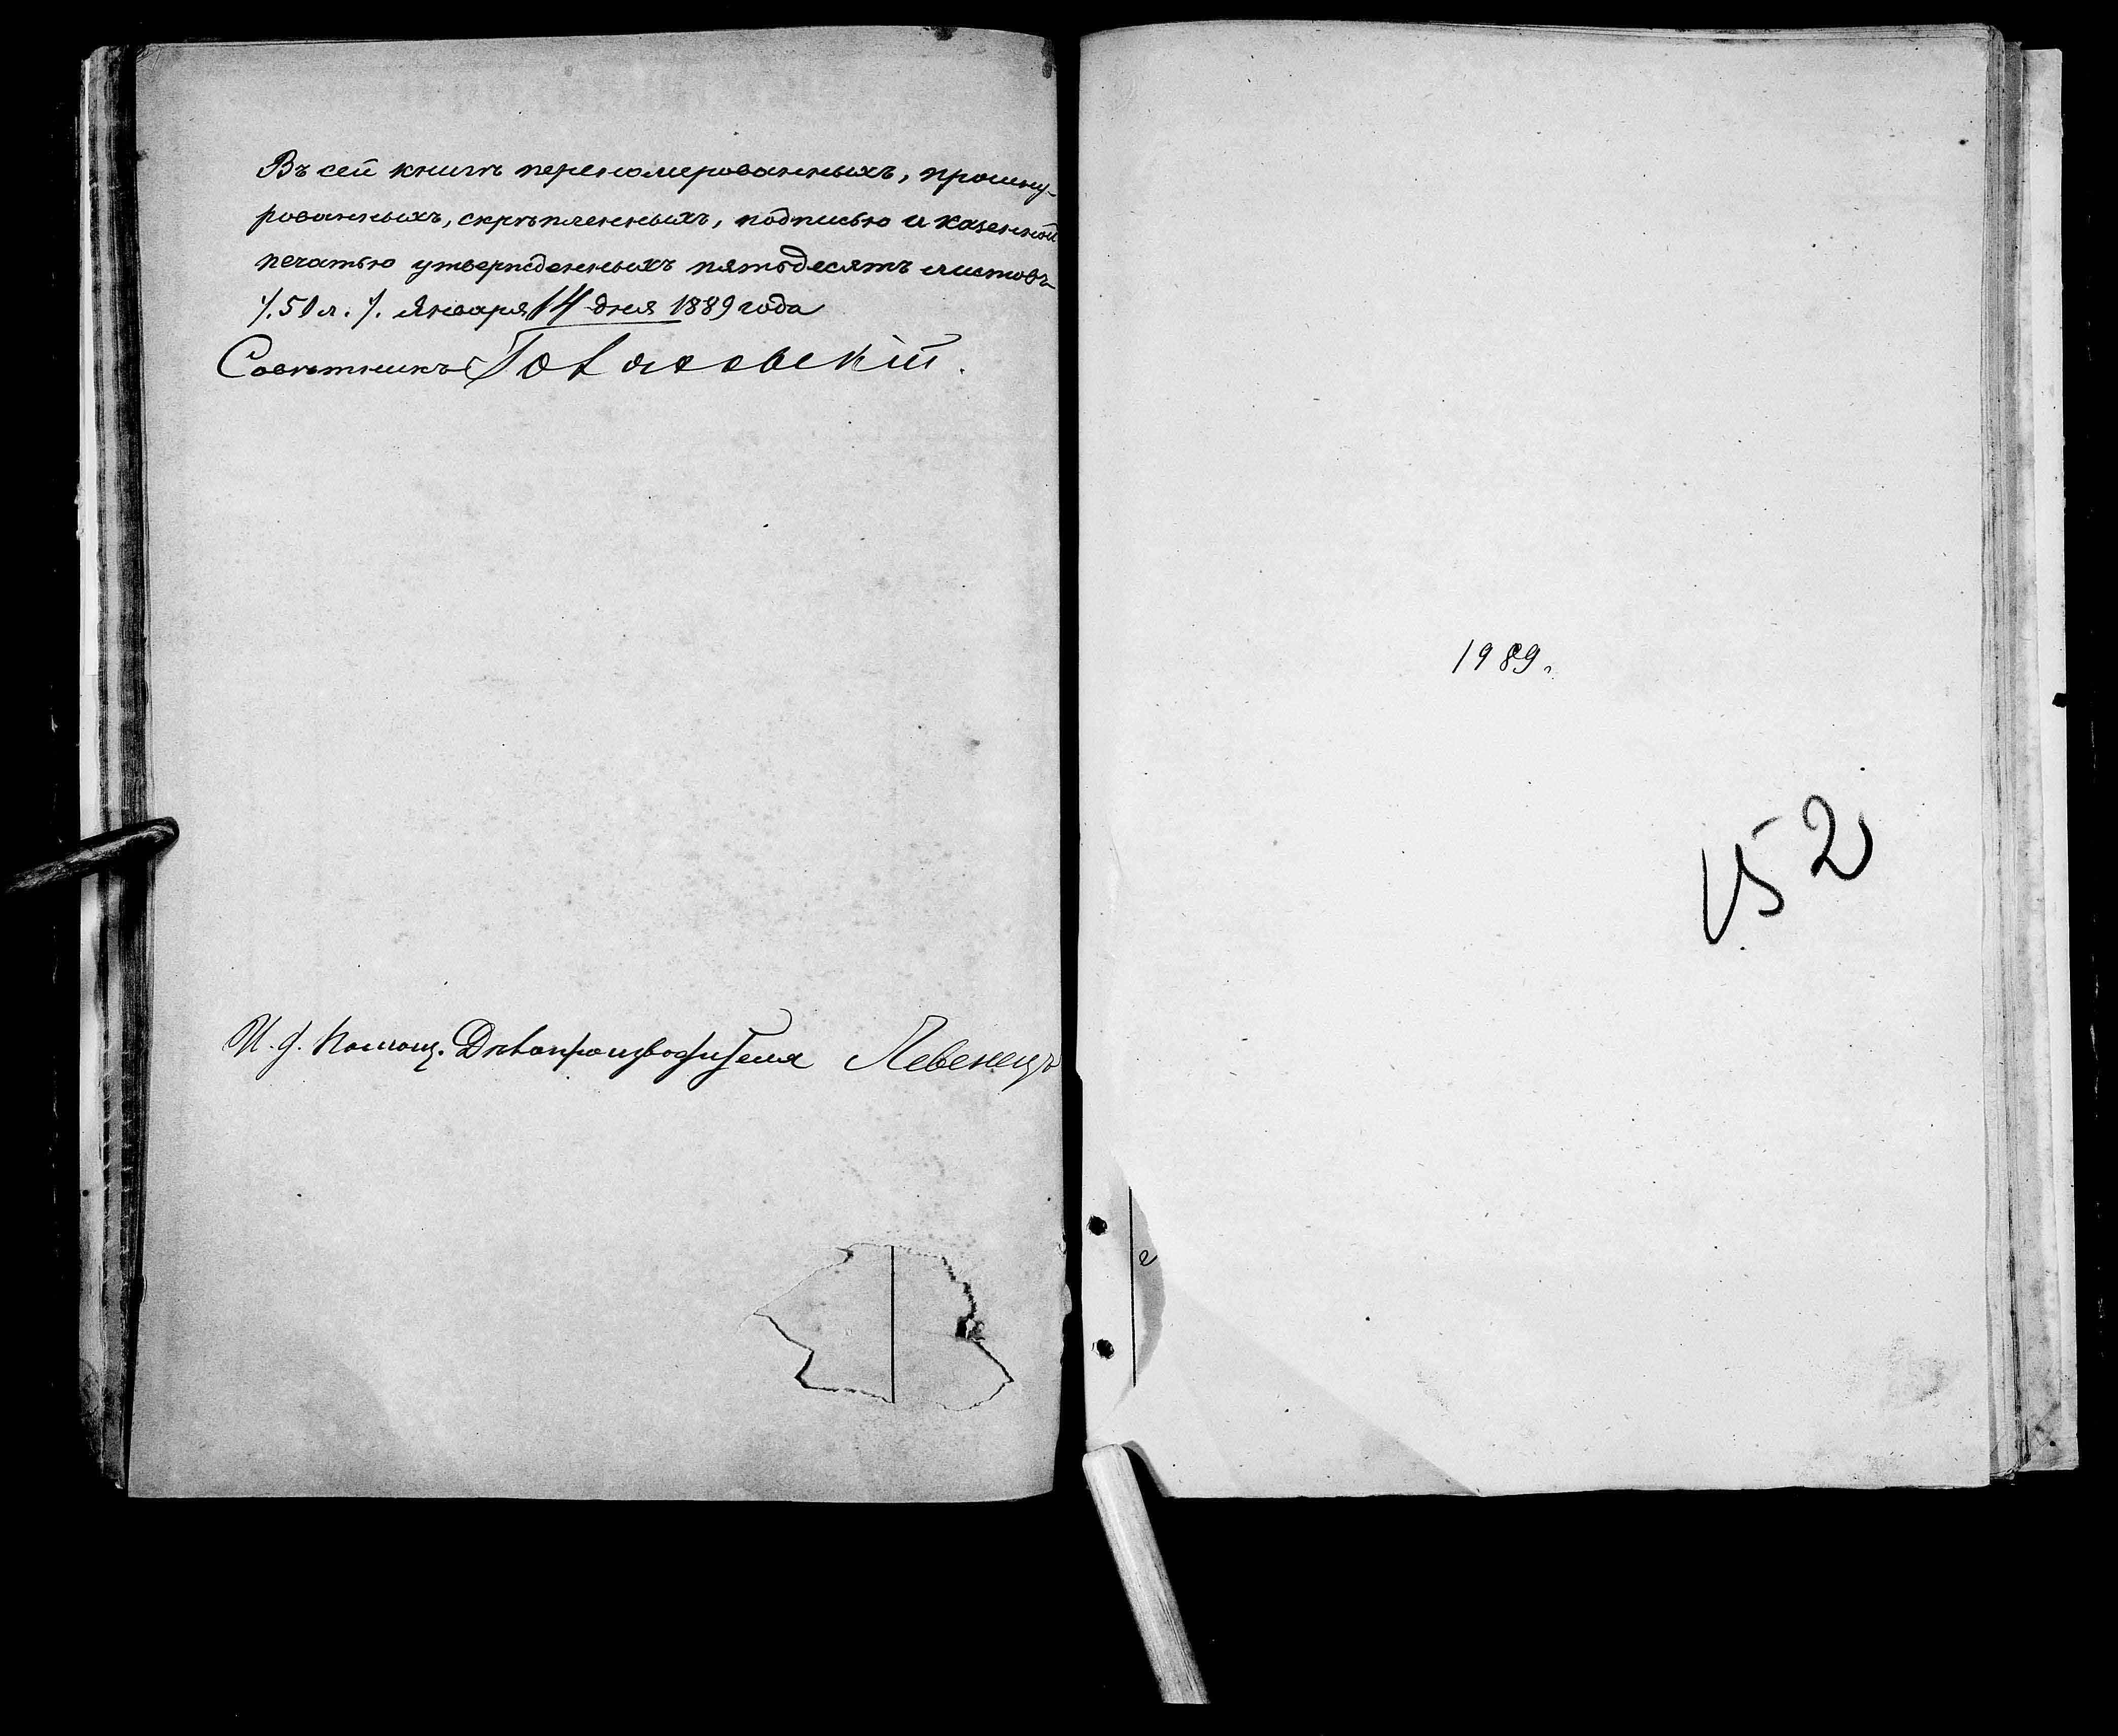 Въ сей книгѣ перенумерованныхъ, прошну-
рованныхъ, скрѣпленныхъ, подписью и казенной
печатью утвержденныхъ пятьдесятъ листовъ
/.50 л./. Января 14 дня 1889 года
Совѣтникъ
И. д. Помощ. Дѣлопроизводителя Левенецъ
1989.
152